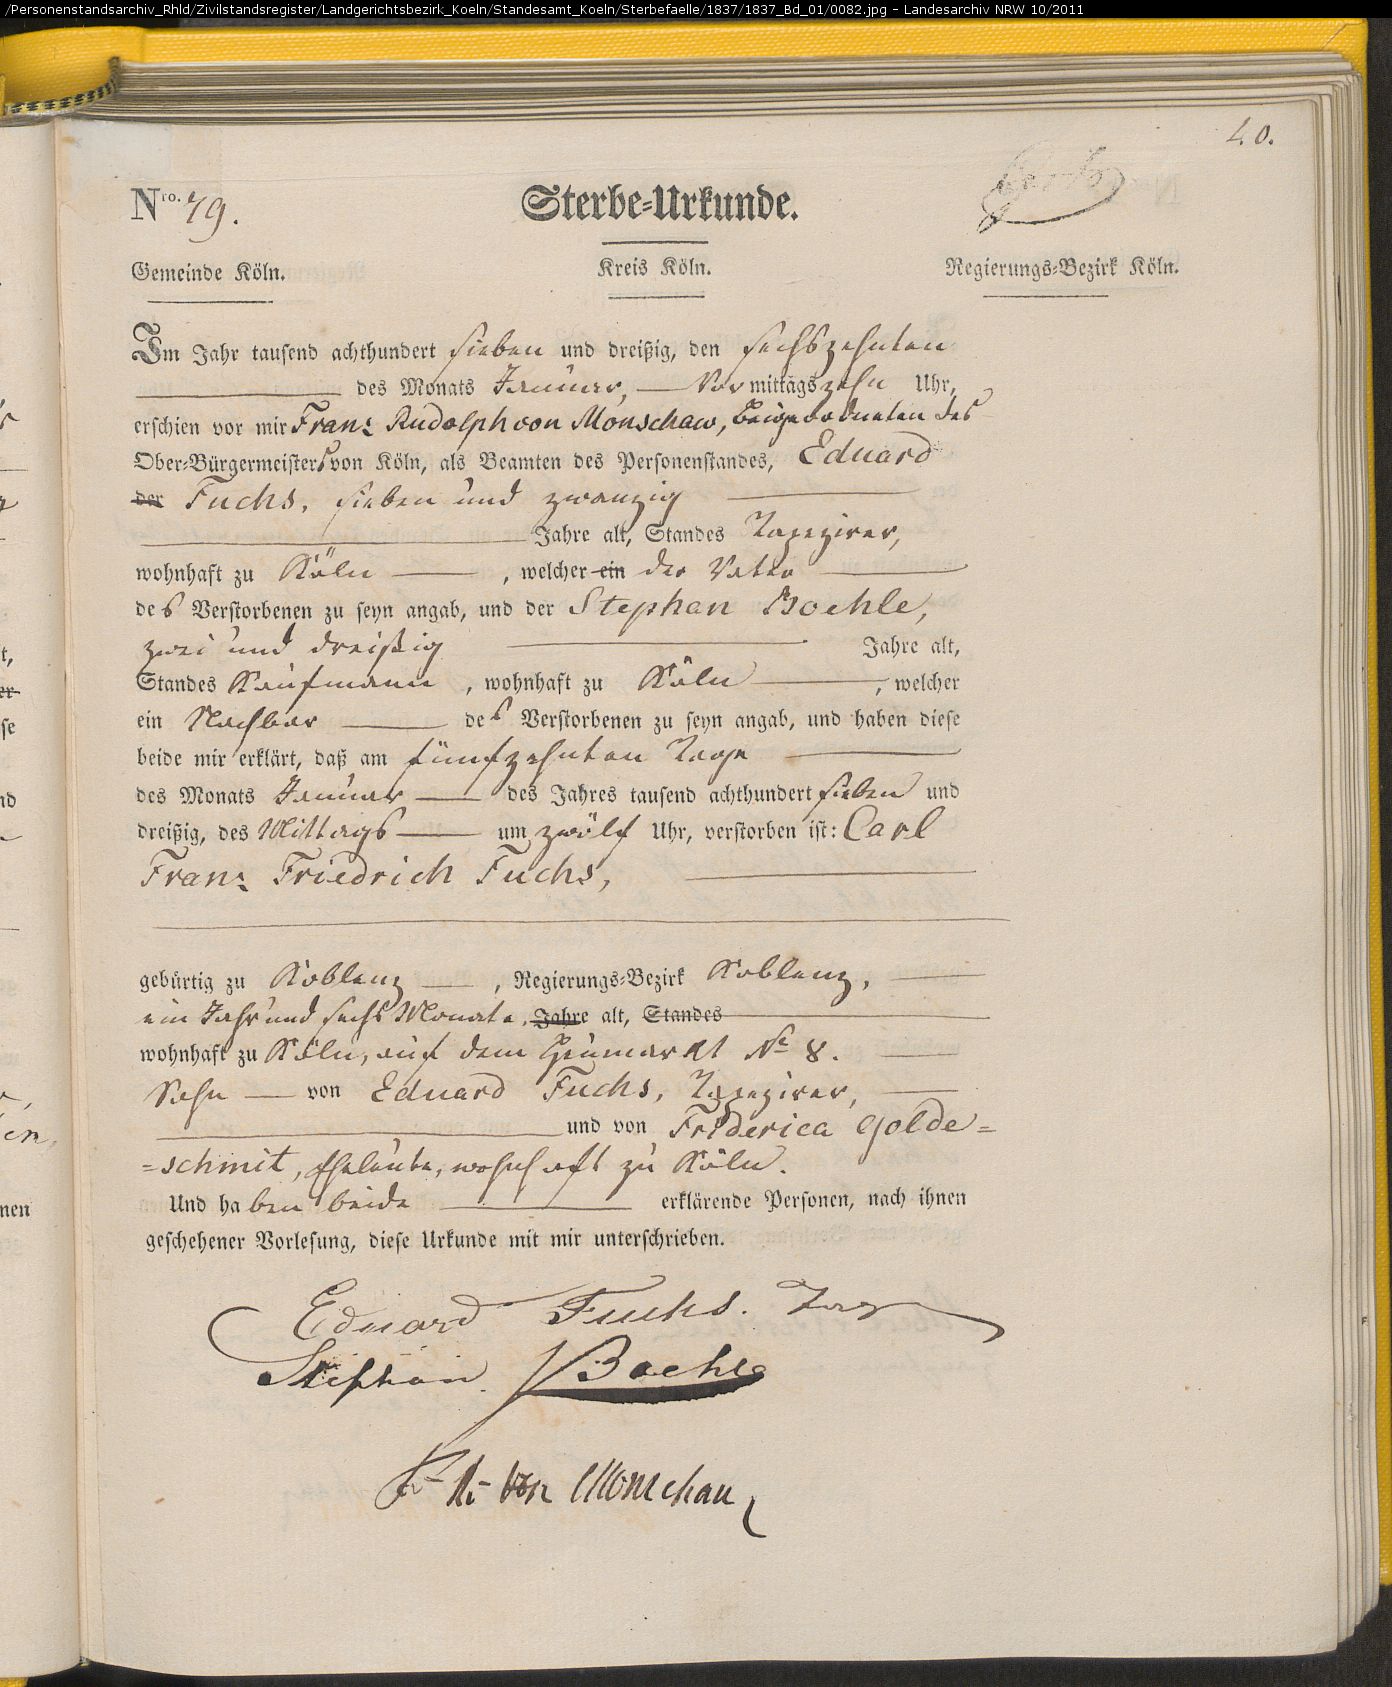 /Personenstandsarchiv_Rhld/Zivilstandsregister/Landgerichtsbezirk_Koeln/Standesamt_Koeln/Sterbefaelle/1837/1837_Bd_01/0082.jpg - Landesarchiv NRW 10/2011
40.
Nro. 79. Sterbe-Urkunde.
Gemeinde Köln. Kreis Köln. Regierungs-Bezirk Köln.
Im Jahr tausend achthundert sieben und dreißig, den sechszehnten
des Monats Januar, Vormittags zehn Uhr,
erschien vor mir Franz Rudolph von Monschaw, Beigeordneten des
Ober-Bürgermeisters von Köln, als Beamten des Personenstandes, Eduard
der Fuchs, sieben und zwanzig
Jahre alt, Standes Tapezirer,
wohnhaft zu Köln, welcher ein der Vater
des Verstorbenen zu seyn angab, und der Stephan Boehle,
zwei und dreißig Jahre alt,
Standes Kaufmann, wohnhaft zu Köln, welcher
ein Nachbar des Verstorbenen zu seyn angab, und haben diese
beide mir erklärt, daß am fünfzehnten Tage
des Monats Januar des Jahres tausend achthundert sieben und
dreißig, des Mittags um zwölf Uhr, verstorben ist: Carl
Franz Friedrich Fuchs,
gebürtig zu Koblenz, Regierungs-Bezirk Koblenz,
ein Jahr und sechs Monate, Jahre alt, Standes
wohnhaft zu Köln, auf dem Heumarkt No 8.
Sohn von Eduard Fuchs, Tapezirer,
und von Friderica Golde=
=schmit, Eheleute, wohnhaft zu Köln.
Und haben beide erklärende Personen, nach ihnen
geschehener Vorlesung, diese Urkunde mit mir unterschrieben.
Eduard Fuchs.
Stephan Boehle
F. R. von Monschau